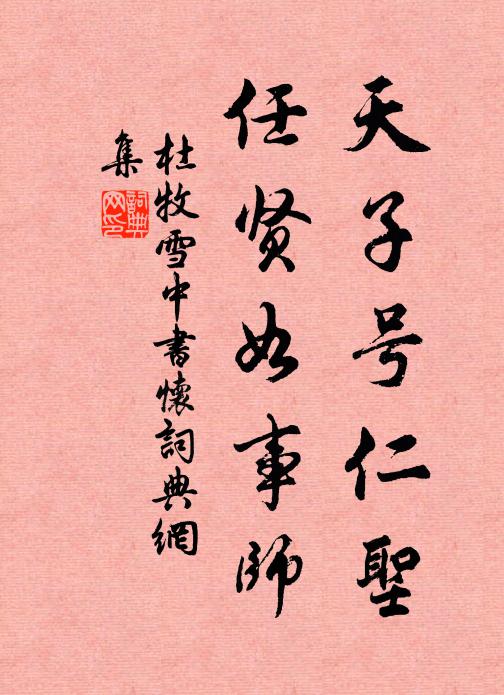 天子号仁聖
任贤如事師
杜牧雪中書懷詞典網
集
詞典
网印